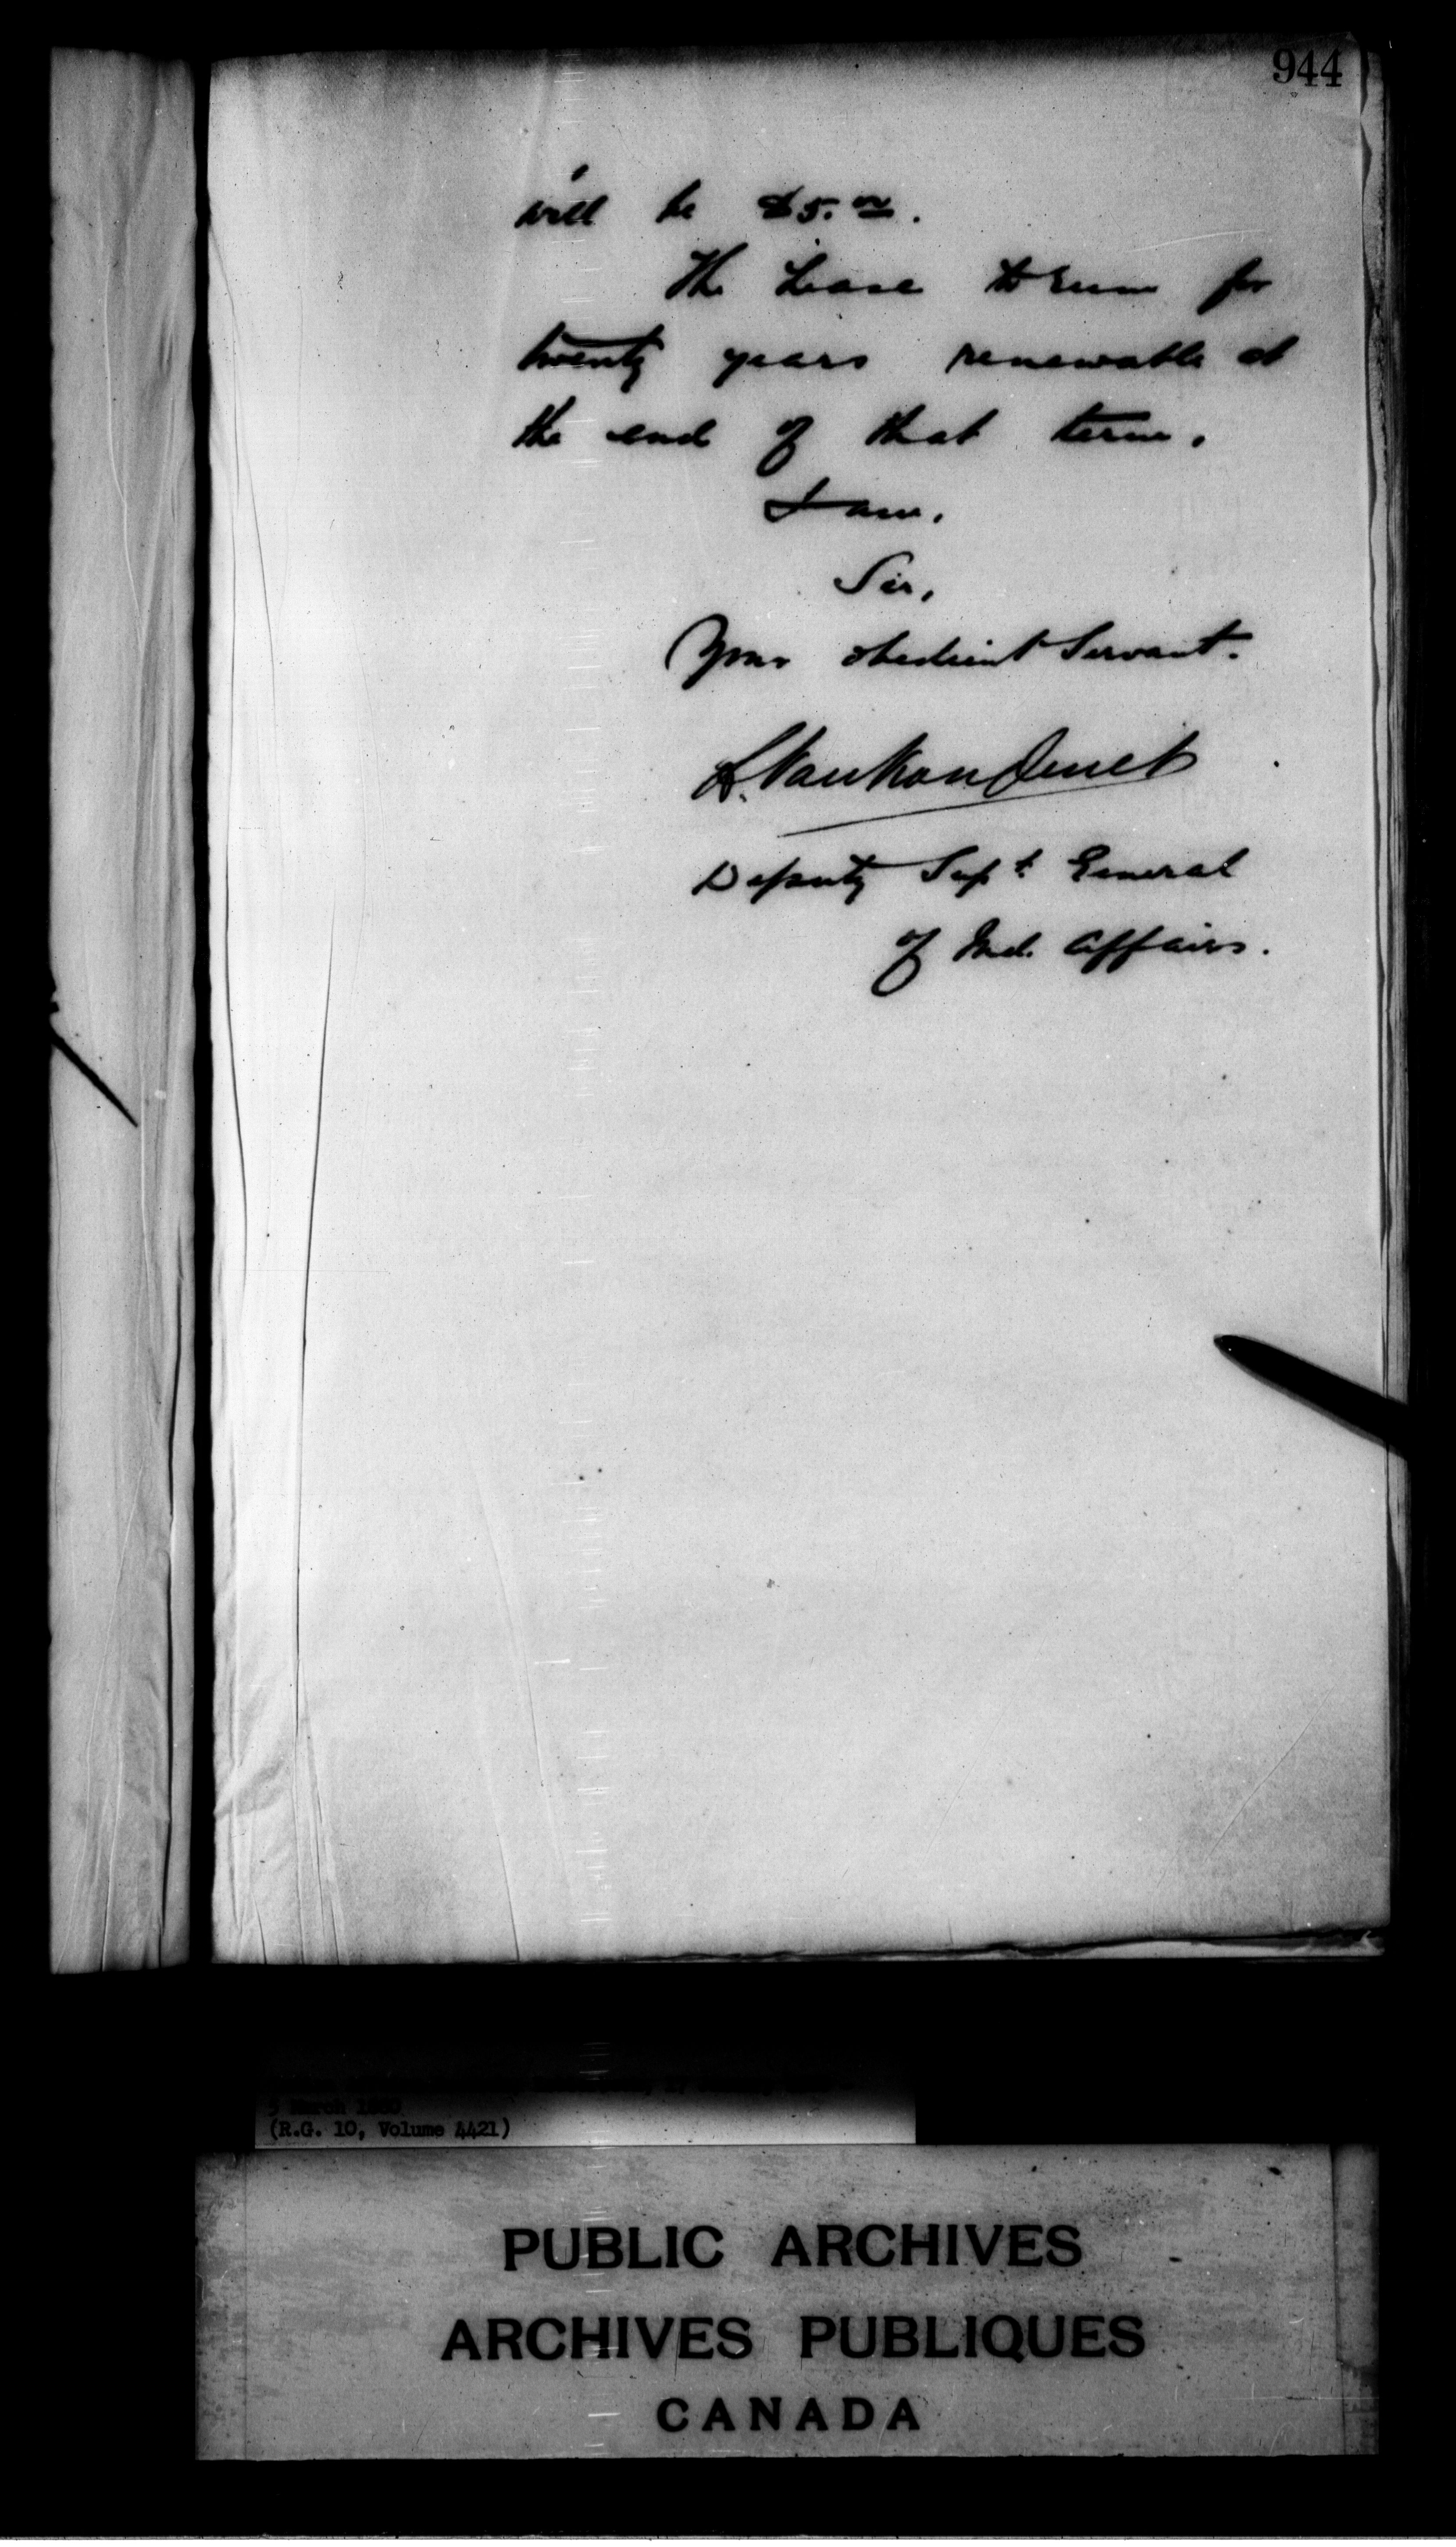 944
will be $5.00.
The Lease to run for
twenty years renewable at
the end of that term.
I am,
Sir,
Your obedient Servant.
L. VanKoughnet
Deputy Supt. General
of Ind. Affairs.
(R.G. 10, Volume 4421)
PUBLIC ARCHIVES
ARCHIVES PUBLIQUES
CANADA